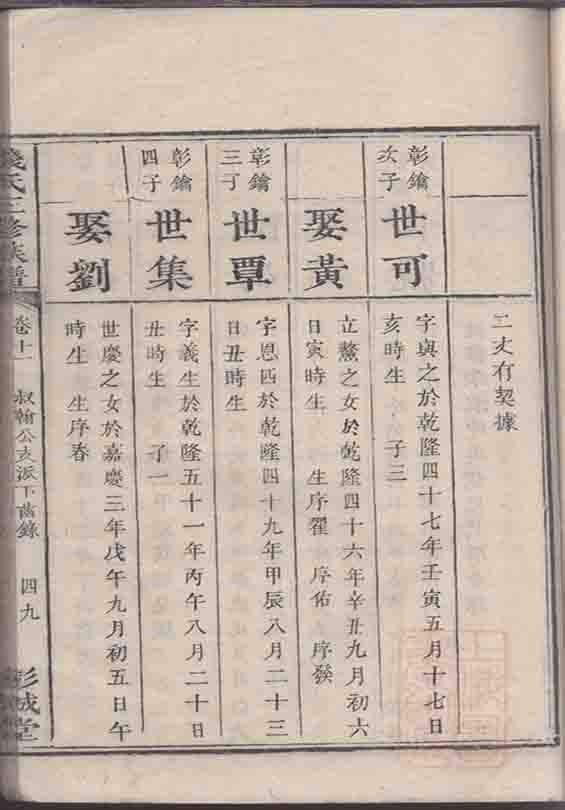 二丈有契據
彰鑰
次子
世可
字與之於乾隆四十七年壬寅五月十七日
亥時生 子三
娶黃
立鰲之女於乾隆四十六年辛丑九月初六
日寅時生 生序翟 序佑 序發
彰鑰
三丁
世覃
字恩匹於乾隆四十九年甲辰八月二十三
日丑時生
彰鑰
四子
世集
字義生於乾隆五十一年丙午八月二十日
丑時生 子一
娶劉
世慶之女於嘉慶三年戊午九月初五日午
時生 生序春
錢氏三修族譜
卷十一 叔翰公支派下齒錄 四九
彭城堂